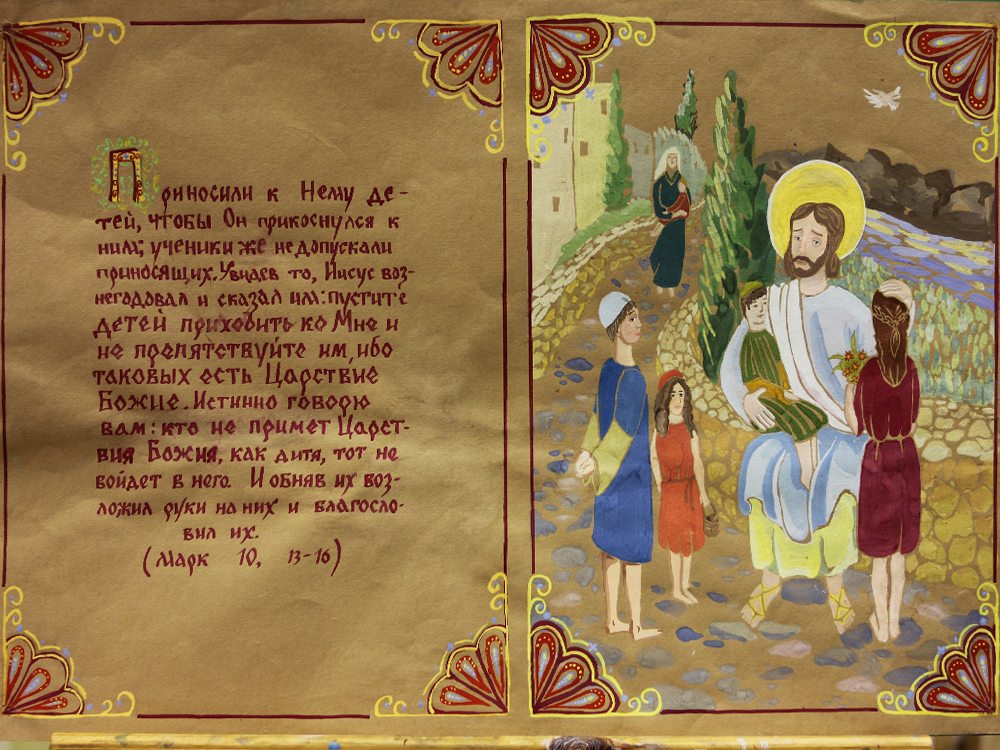 Приносили к Нему де-
тей, чтобы Он прикоснулся к
ним; ученики же не допускали
приносящих. Увидев то, Иисус воз-
негодовал и сказал им: пустите
детей приходить ко Мне и
не препятствуйте им, ибо
таковых есть Царствие
Божие. Истинно говорю
вам: кто не примет Царст-
вия Божия, как дитя, тот не
войдет в него. И обняв их воз-
ложил руки на них и благосло-
вил их.
(Марк 10, 13-16)